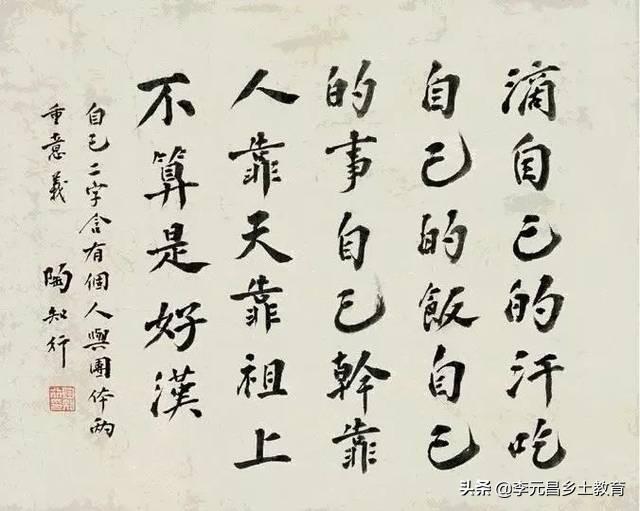 滴自己的汗吃
自己的飯自己
的事自己幹靠
人靠天靠祖上
不算是好漢
自己二字含有個人與團体兩
重意義 陶知行
头条 @李元昌乡土教育